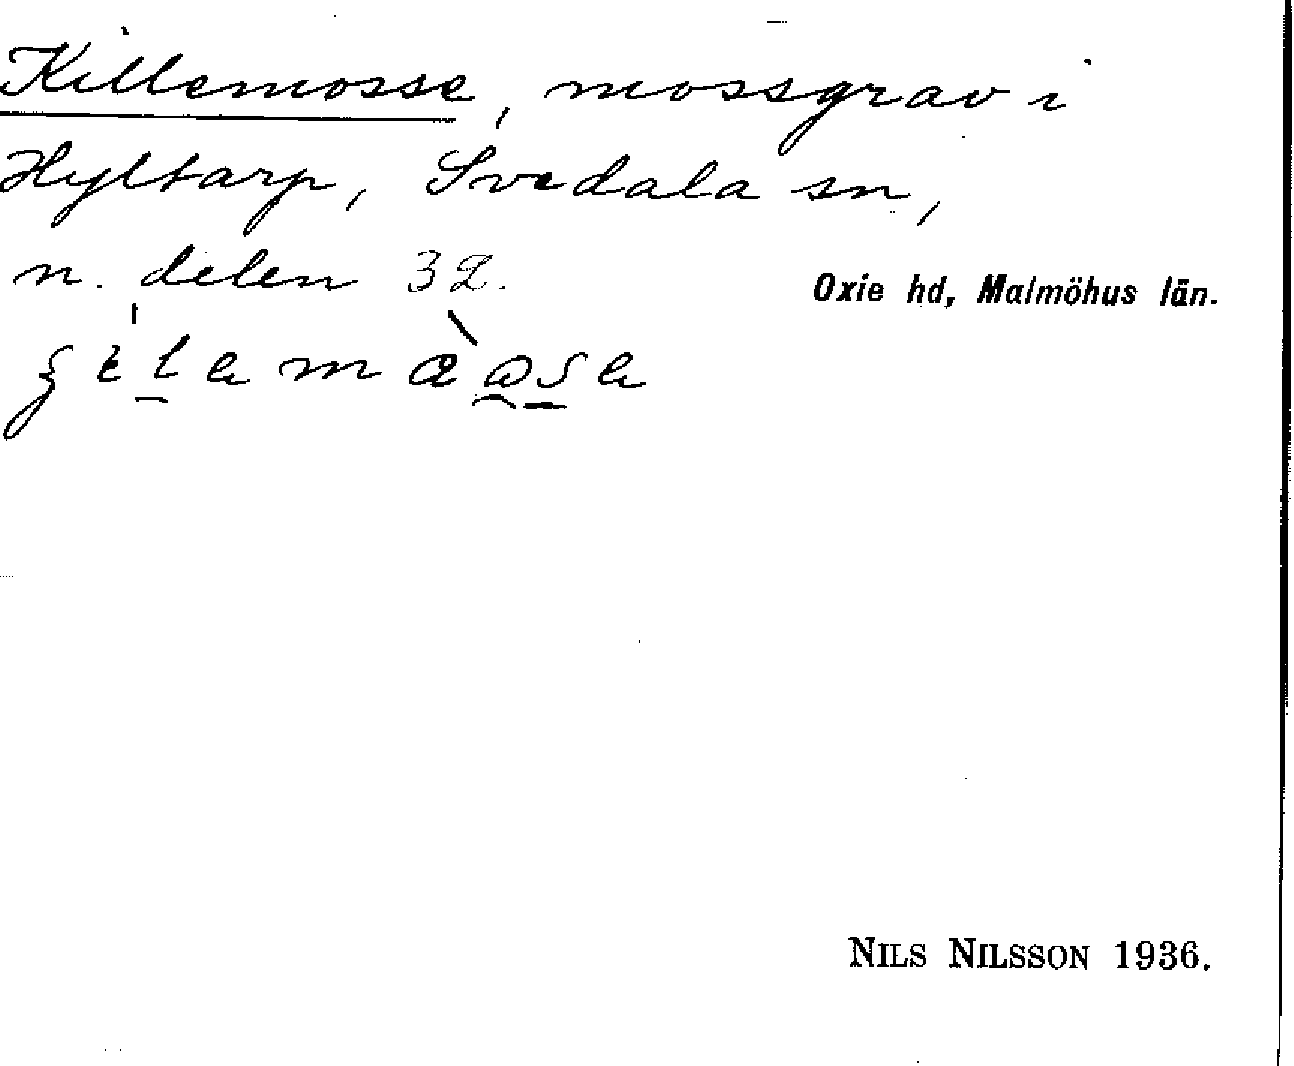 Killemosse, mossgrav i
Hyltarp, Svedala sn,
n. delen 32.
Oxie hd, Malmöhus län.
NILS NILSSON 1936.